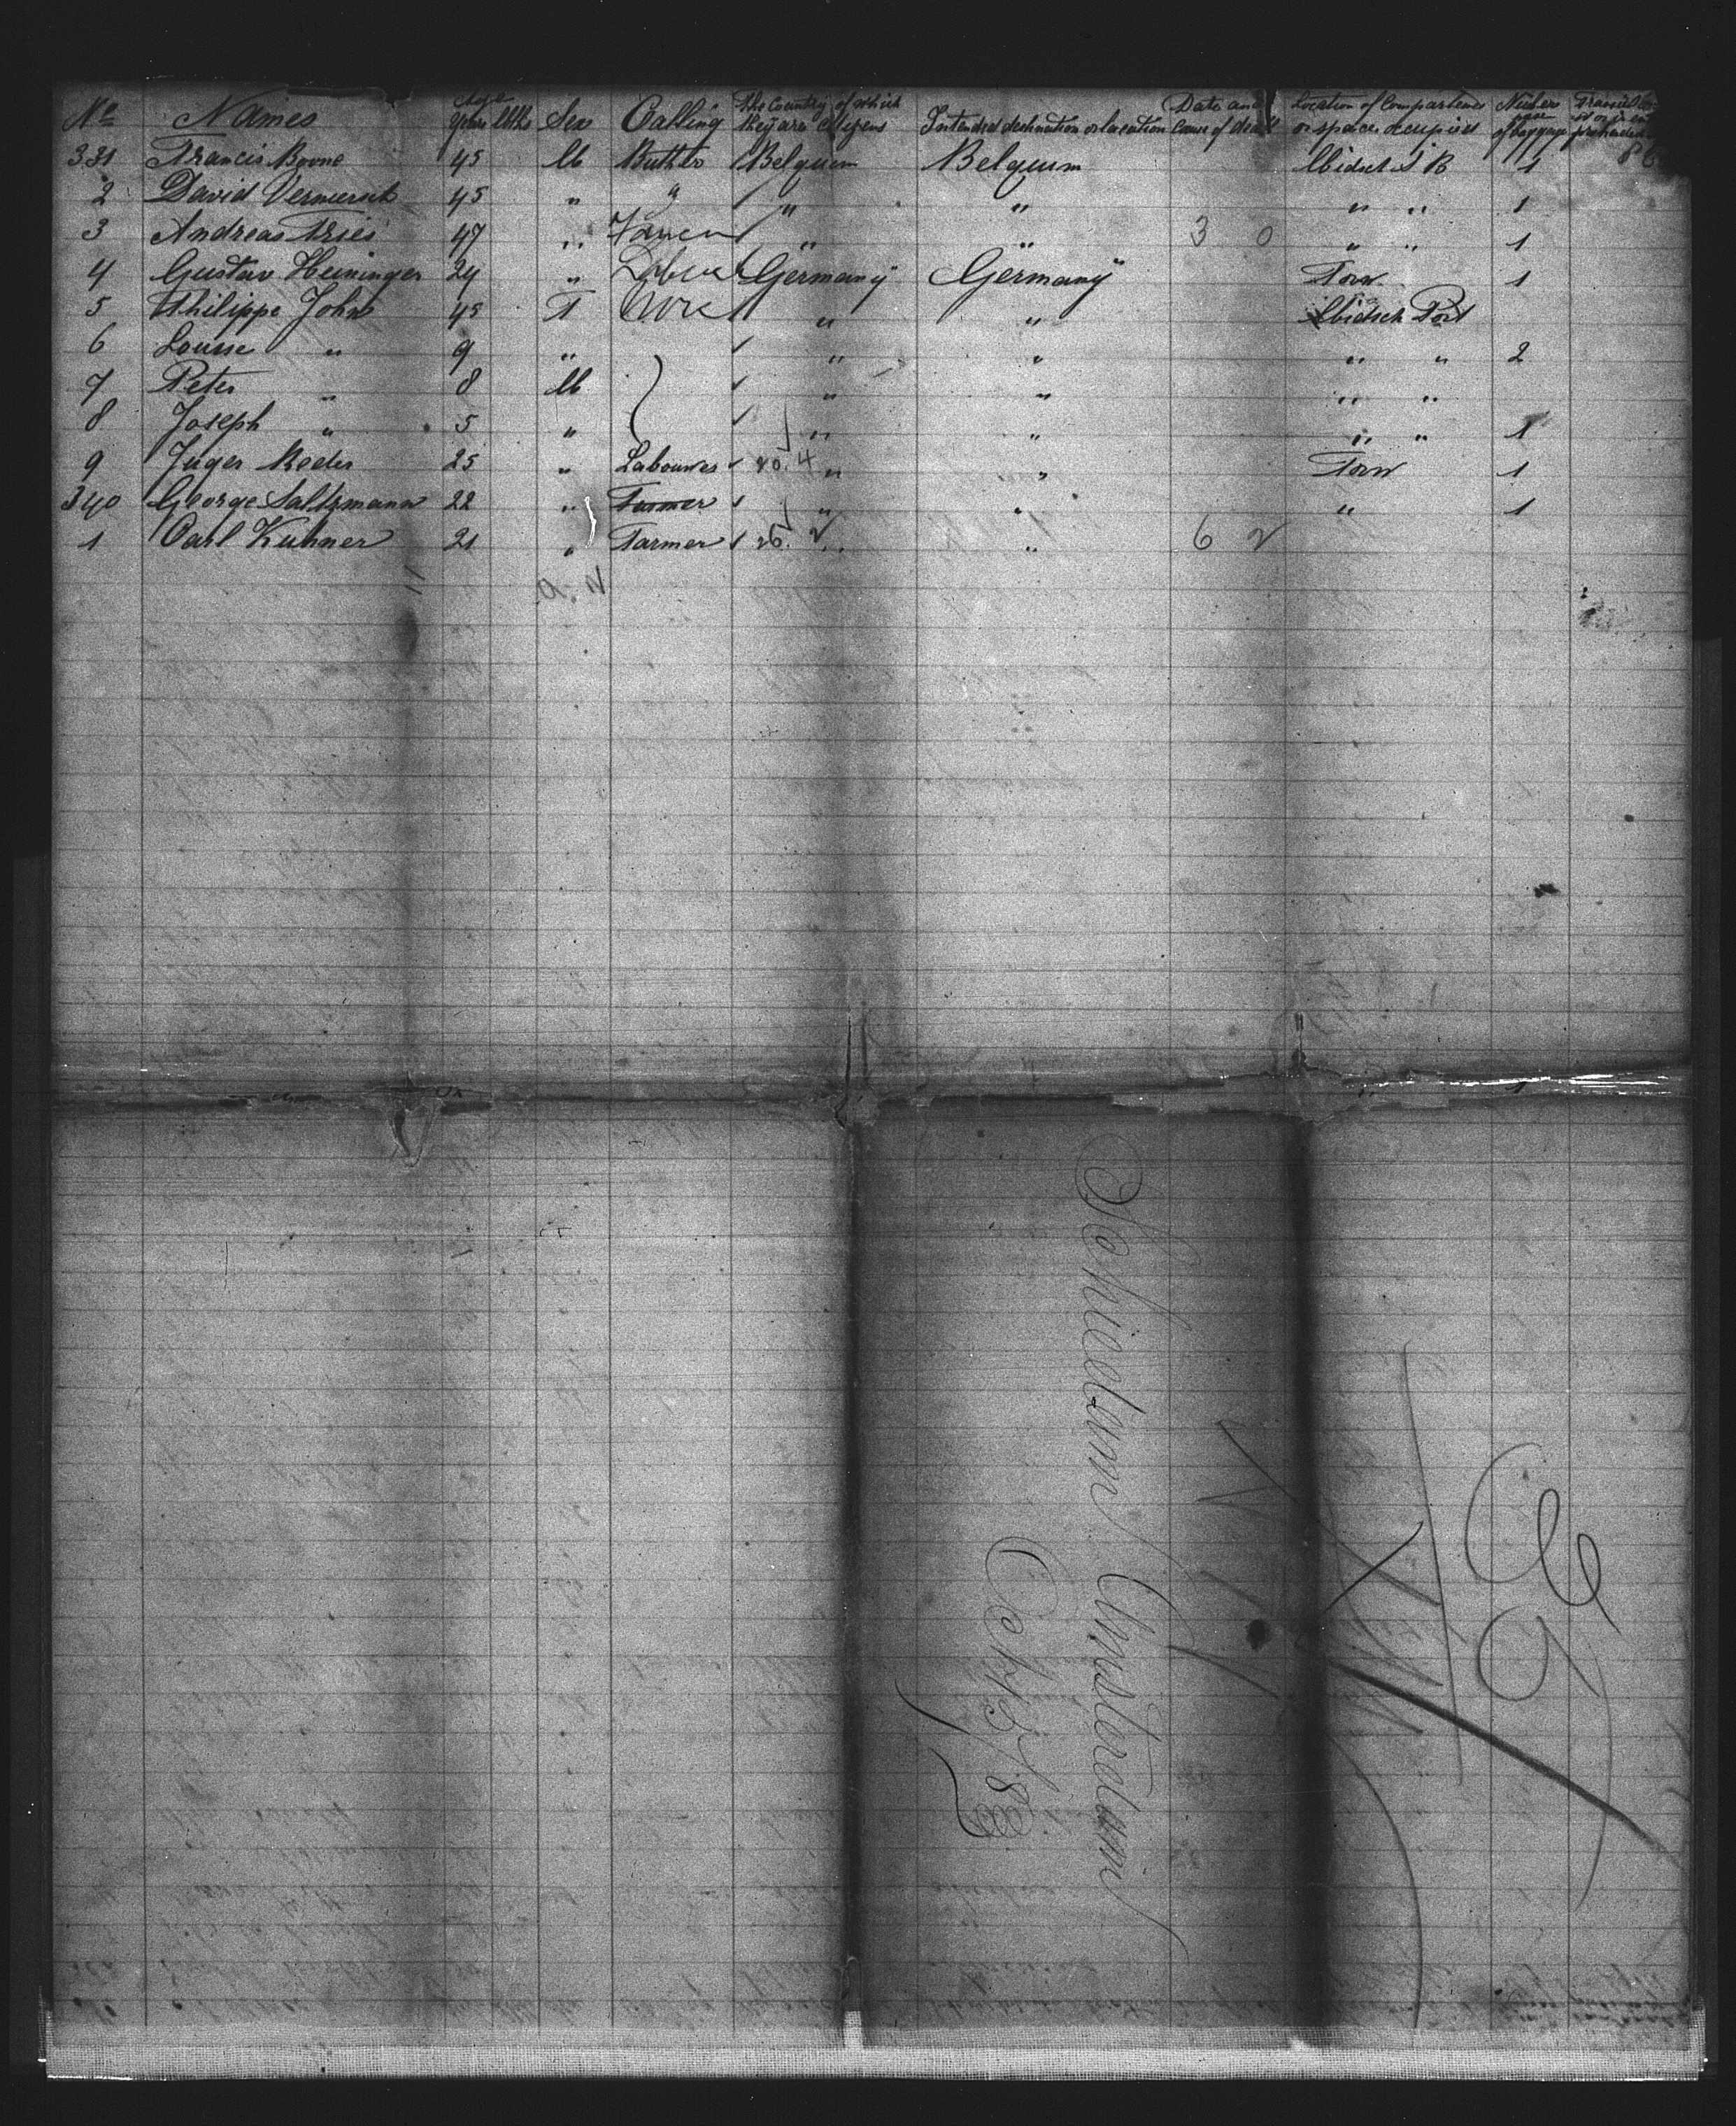 No Names Age Years Mths Sex Calling The Country of which they are citizens Intended destination or location Date and Cause of death Location of Compartment or space occupied Number of baggage
331 Francis Boone 45 M Buthlr Belguim Belguim Midsch S B 1
2 David Vermersch 45 " " " " " " 1
3 Andreas Fries 47 " Farmer " " 3 0 " " 1
4 Gustav Heininger 24 " Germany Germany Forw 1
5 Philippe John 45 F None " " Midsch Port
6 Lousse " 9 " " " " " 2
7 Peter " 8 M " " " "
8 Joseph " 5 " " " " " 1
9 Juger Reder 25 " Labourer 20. 4 " " Forw 1
340 George Saltzmann 22 " Farmer " " " 1
1 Carl Kuhner 21 " Farmer 26. 2 " " 6 2
Schiedam Amsterdam
Oct 5/83